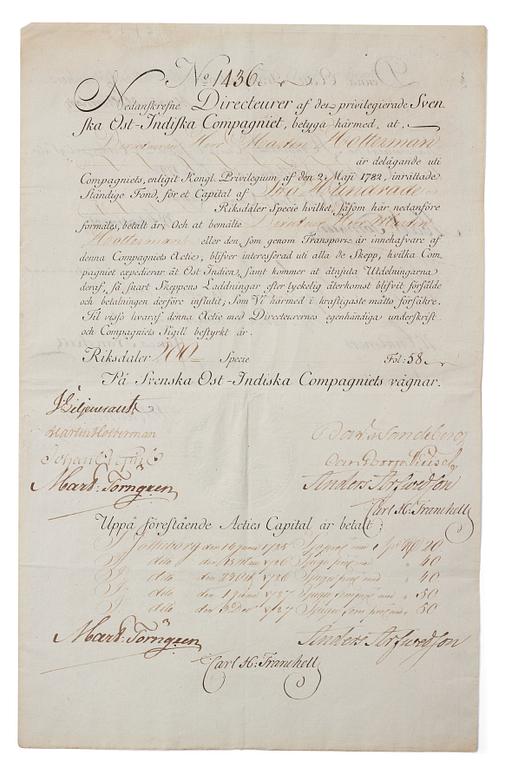 No 1436.
Nedanskrefne Directeurer af det privilegierade Sven-
ska Ost-Indiska Compagniet, betyga härmed, at
Directeuren Herr Marten Holterman
är delägande uti
Compagniets, enligit Kongl. Privilegium af den 2 Maji 1782, inrättade
ständige Fond, för et Capital af Två Hundrade
Riksdaler Specie hvilket, såsom här nedanföre
förmäles, betalt är; Och at benälte Directeuren Herr Martin
Holterman eller den, som genom Transport är innehafvare af
denna Compagniets Actie, blifver interesserad uti alla de Skepp, hvilka Com-
pagniet expedierar åt Ost Indien, samt kommer at åtnjuta Utdelningarna
deraf, så snart Skeppens Laddningar efter lyckelig återkomst blifvit försålde
och betalningen derföre influtit; Som Vi härmed i kraftigaste måtto försäkre.
Til visso hvaraf denna Actie med Directeurernes egenhändiga underskrift
och Compagniets Sigill bestyrkt är.
Riksdaler 200 Specie Fol: 58.
På Svenska Ost-Indiska Compagniets vägnar.
J Liljencrantz
Martin Holterman
Mart: Törngren
Anders Arfwedson
Carl H: Franchell
Uppå förestående Acties Capital är betalt;
Götheborg den 20
dito den 40
dito den 40
dito den 50
dito den 50
Mart: Törngren Anders Arfwedson
Carl H: Franchell